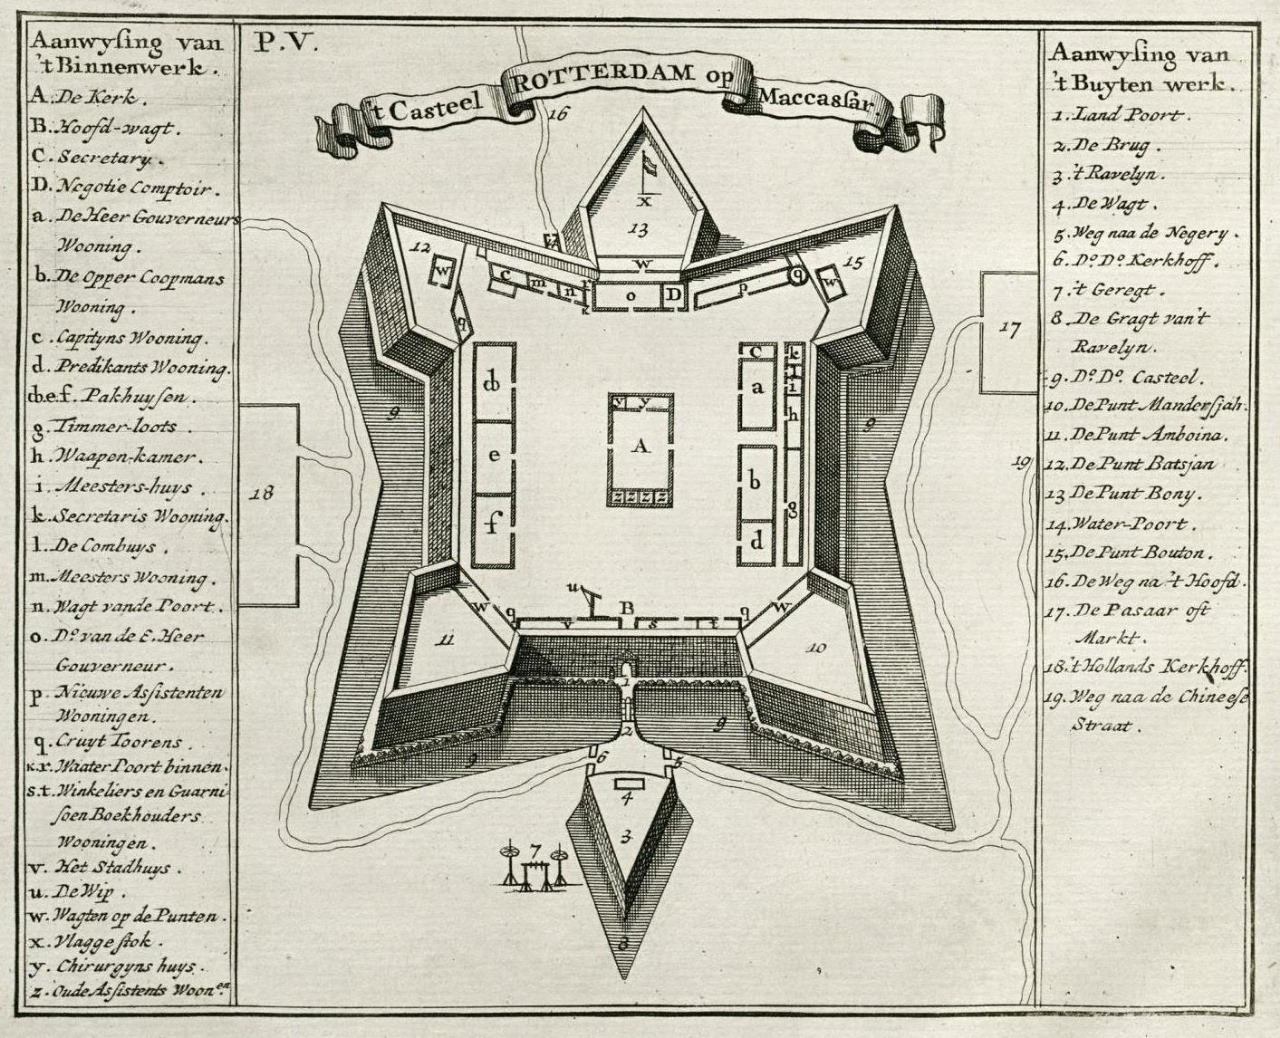 P.V.
't Casteel ROTTERDAM op Maccassar.
Aanwyſing van
't Binnenwerk.
A. De Kerk.
B. Hoofd-wagt.
C. Secretary.
D. Negotie Comptoir.
a. De Heer Gouverneurs
Wooning.
b. De Opper Coopmans
Wooning.
c. Capityns Wooning.
d. Predikants Wooning.
db.e.f. Pakhuyſen.
g. Timmer-loots.
h. Waapen-kamer.
i. Meesters-huys.
k. Secretaris Wooning.
l. De Combuys.
m. Meesters Wooning.
n. Wagt vande Poort.
o. Do. van de E. Heer
Gouverneur.
p. Nieuwe Asſistenten
Wooningen.
q. Cruyt Toorens.
K.r. Waater Poort binnen.
s.t. Winkeliers en Guarni
ſoen Boekhouders
Wooningen.
v. Het Stadhuys.
u. De Wip.
w. Wagten op de Punten.
x. Vlagge ſtok.
y. Chirurgyns huys.
z. Oude Asſistents Woonen.
16
x
13
12
w
w
w
15
14
C
m
n
r
K
o
D
p
q
q
db
e
f
y
y
A
z z z z
c
k
l
a
i
h
b
g
d
9
9
17
18
19
u
B
w
q
v
s
t
q
w
11
10
1
2
9
9
6
5
4
3
7
8
Aanwyſing van
't Buyten werk.
1. Land Poort.
2. De Brug.
3. 't Ravelyn.
4. De Wagt.
5. Weg naa de Negery.
6. Do. Do. Kerkhoff.
7. 't Geregt.
8. De Gragt van 't
Ravelyn.
9. Do. Do. Casteel.
10. De Punt Manderſjah.
11. De Punt Amboina.
12. De Punt Batsjan
13. De Punt Bony.
14. Water-Poort.
15. De Punt Bouton.
16. De Weg na 't Hoofd.
17. De Pasaar oft
Markt.
18. 't Hollands Kerkhoff.
19. Weg naa de Chineeſe
Straat.